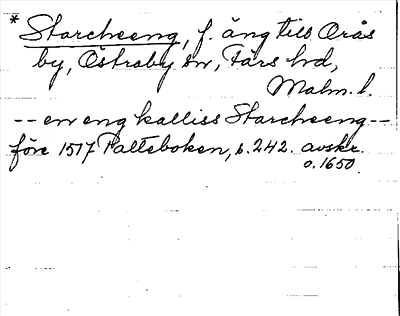 * Starcheeng, f. äng till Orås
by, Östraby sn, Färs hd,
Malm. l.
-- en eng kalliss Starcheeng --
före 1517 Palteboken, s. 242. avskr.
o. 1650.